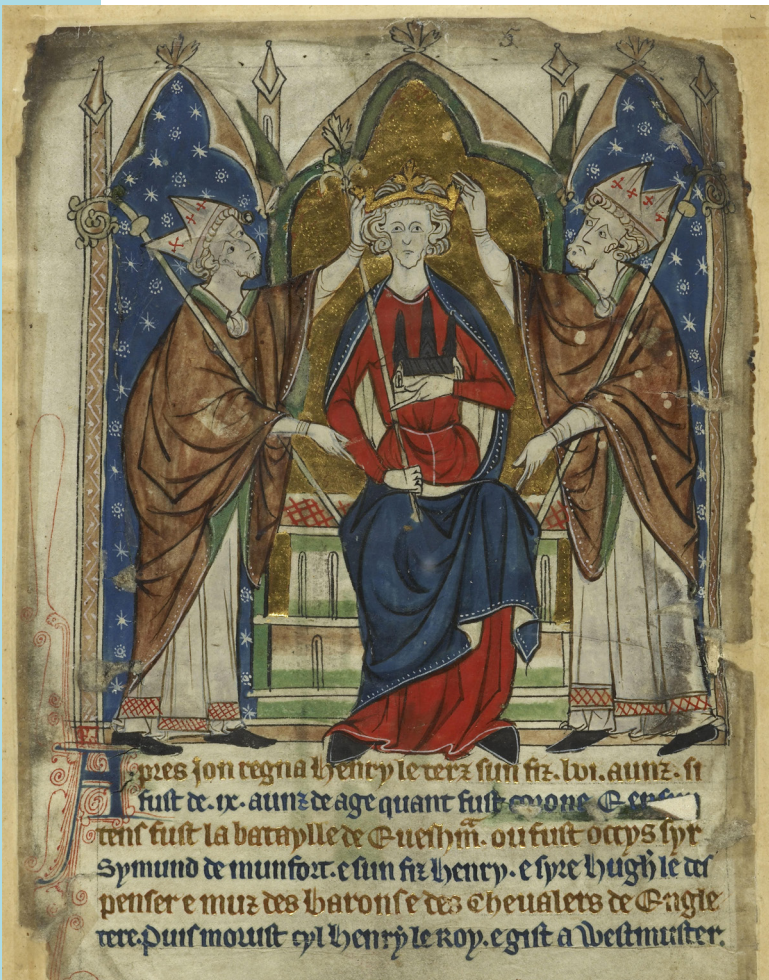 5
Apres Jon regna Henry le terz sun fiz .lvi. aunz. si
fust de .ix. aunz de age quant fust corone
tens fust la bataylle de Eueshm̄. ou fust occys syr
Symund de munfort. e sun fiz Henry. e syre Hugh le des
penser e muz des barons e des Cheualers de Engle
tere. Puis morust cyl Henry le Roy. e gist a Westmuster.